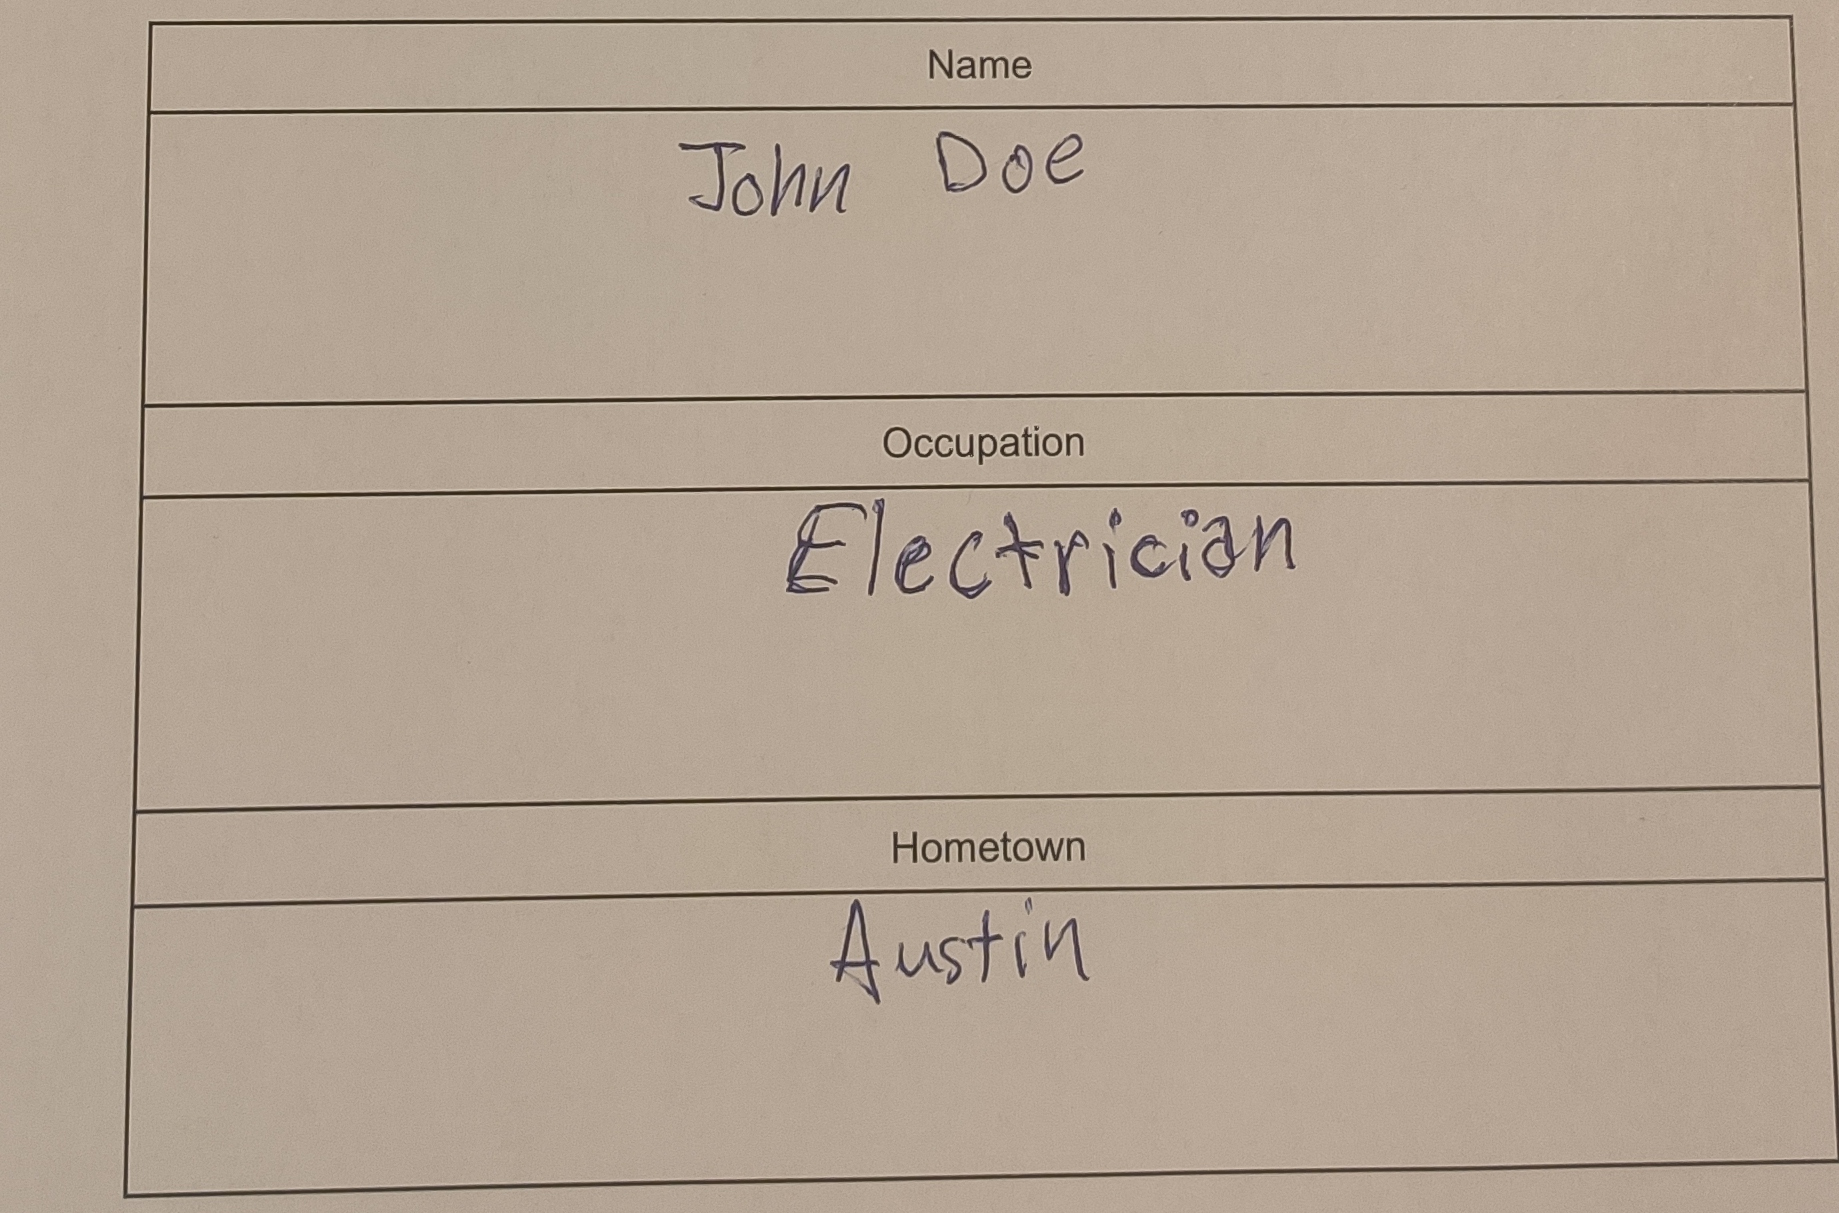 Name
John Doe
Occupation
Electrician
Hometown
Austin